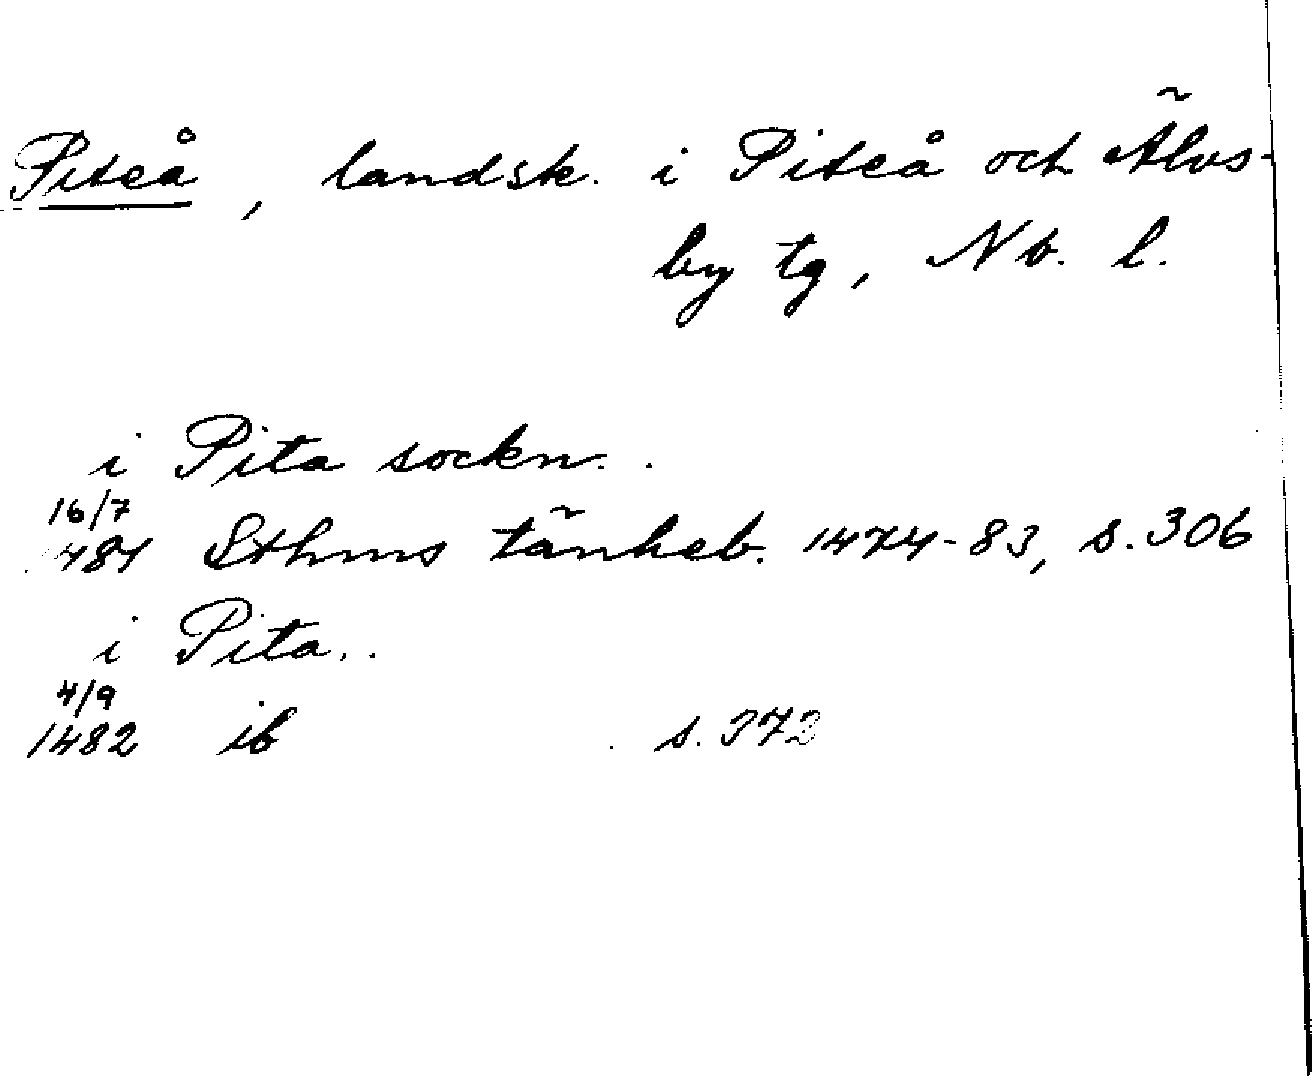 Piteå, landsk. i Piteå och Älvs-
by tg, Nb. l.
i Pita sockn. .
16/7
1481 Sthms tänkeb. 1474-83, s. 306
i Pita. .
4/9
1482 ib s. 372